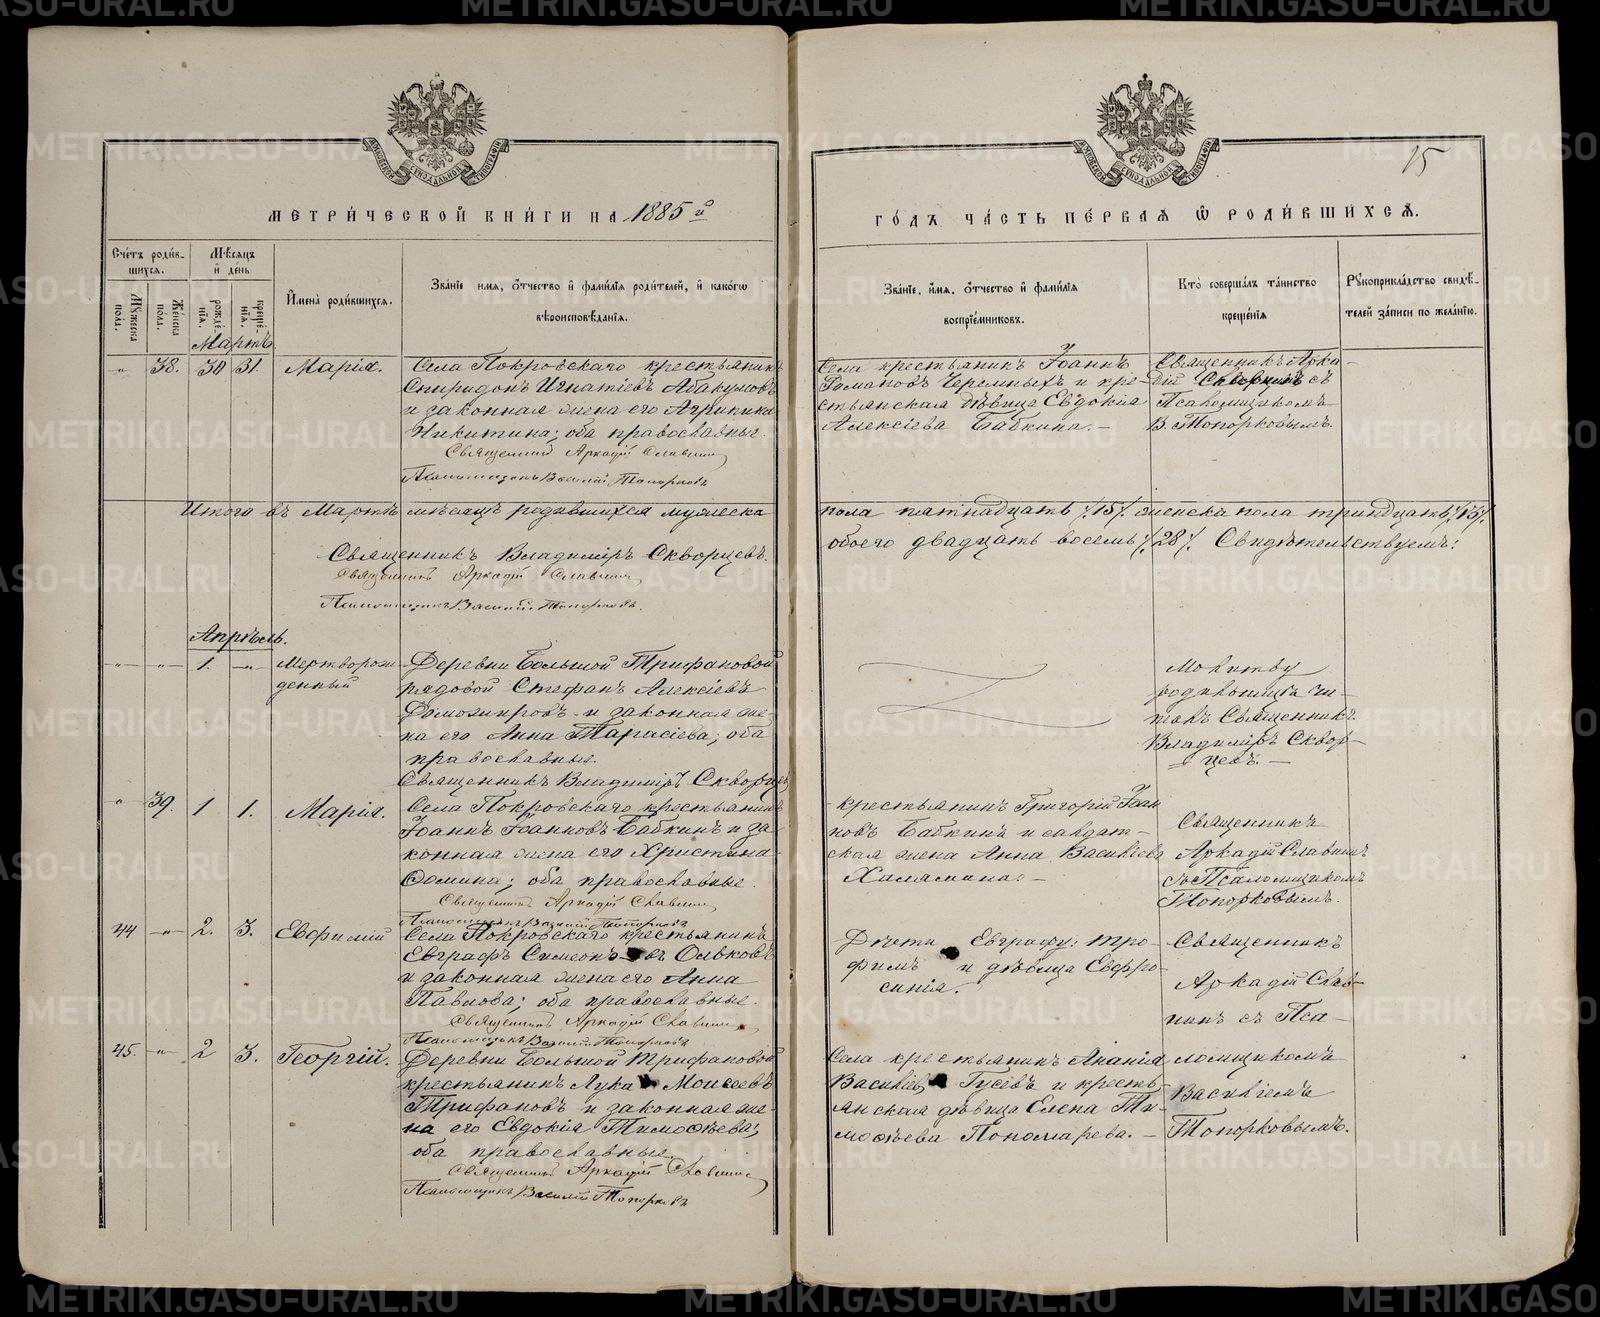 METRIKI.GASO-URAL.RU
15
МЕТРИ́ЧЕСКОЙ КНИ́ГИ НА 1885 й
ГО́ДЪ ЧА́СТЬ ПЕ́РВАѦ Ѡ РОДИ́ВШИХСѦ.
Сче́тъ роди́в-
шихся.
Мѣ́сяцъ
и де́нь
Му́жеска пола.
Же́нска пола.
рожде́нїя.
креще́нїя.
И́мена роди́вшихся.
Зва́нїе имя, ѻ́тчество и фами́лїя роди́телей, и како́гѡ
вѣроисповѣ́данїя.
Зва́нїе, и́мя, ѻ́тчество и фами́лїя
воспрїе́мниковъ.
Кто̀ соверша́лъ та́инство
креще́нїя
Рꙋкоприкла́дство свидѣ́-
телей за́писи по жела́нїю.
Мартъ.
38. 30 31 Марія.
Села Покровскаго крестьянинъ
Спиридонъ Игнатіевъ Абакумовъ
и законная жена его Агрипина
Никитина; оба православные.
Священникъ Аркадій Славнинъ
Псаломщикъ Василій Топорковъ
Села крестьянинъ Іоаннъ
Романовъ Черемныхъ и кре-
стьянская дѣвица Евдокія
Алексіева Бабкина. —
Священникъ Арка
дій съ
Псаломщикомъ
В. Топорковымъ.
Итого въ Мартѣ мѣсяцѣ родившихся мужеска
пола пятнадцать /15/ женска пола тринадцать /13/
обоего двадцать восемь /28/ Свидѣтельствуемъ:
Священникъ Владиміръ Скворцевъ.
Священникъ Аркадій Славнинъ
Псаломщикъ Василій Топорковъ.
Апрѣль.
1. Мертворож-
денный
Деревни Большой Трифановой
рядовой Стефанъ Алексіевъ
Доможировъ и законная же-
на его Анна Тарасіева; оба
православные.
Священникъ Владиміръ Скворцевъ
Молитву
родильницѣ чи-
талъ Священникъ
Владиміръ Сквор-
цевъ. —
39. 1 1. Марія.
Села Покровскаго крестьянинъ
Іоаннъ Іоанновъ Бабкинъ и за-
конная жена его Христина
Фомина; оба православные.
Священникъ Аркадій Славнинъ
Псаломщикъ Василій Топорковъ
крестьянинъ Григорій Іоан
новъ Бабкинъ и солдат-
ская жена Анна Василіева
Халямина. —
Священникъ
Аркадій Славнинъ
съ Псаломщикомъ
Топорковымъ.
44 2. 3. Евфимій
Села Покровскаго крестьянинъ
Евграфъ Симеоновъ Ольковъ
и законная жена его Анна
Павлова; оба православные.
Священникъ Аркадій Славнинъ
Псаломщикъ Василій Топорковъ
Дѣти Евграфу: Тро-
фимъ и дѣвица Евфро-
синія.
Священникъ
Аркадій Слав-
нинъ съ Пса-
45. 2 3. Георгій.
Деревни Большой Трифановой
крестьянинъ Лука Моисеевъ
Трифановъ и законная же-
на его Евдокія Тимоѳѣева;
оба православные.
Священникъ Аркадій Славнинъ
Псаломщикъ Василій Топорковъ
Села крестьянинъ Ананія
Василіевъ Гусевъ и кресть-
янская дѣвица Елена Ти-
моѳѣева Пономарева. —
ломщикомъ
Василіемъ
Топорковымъ.